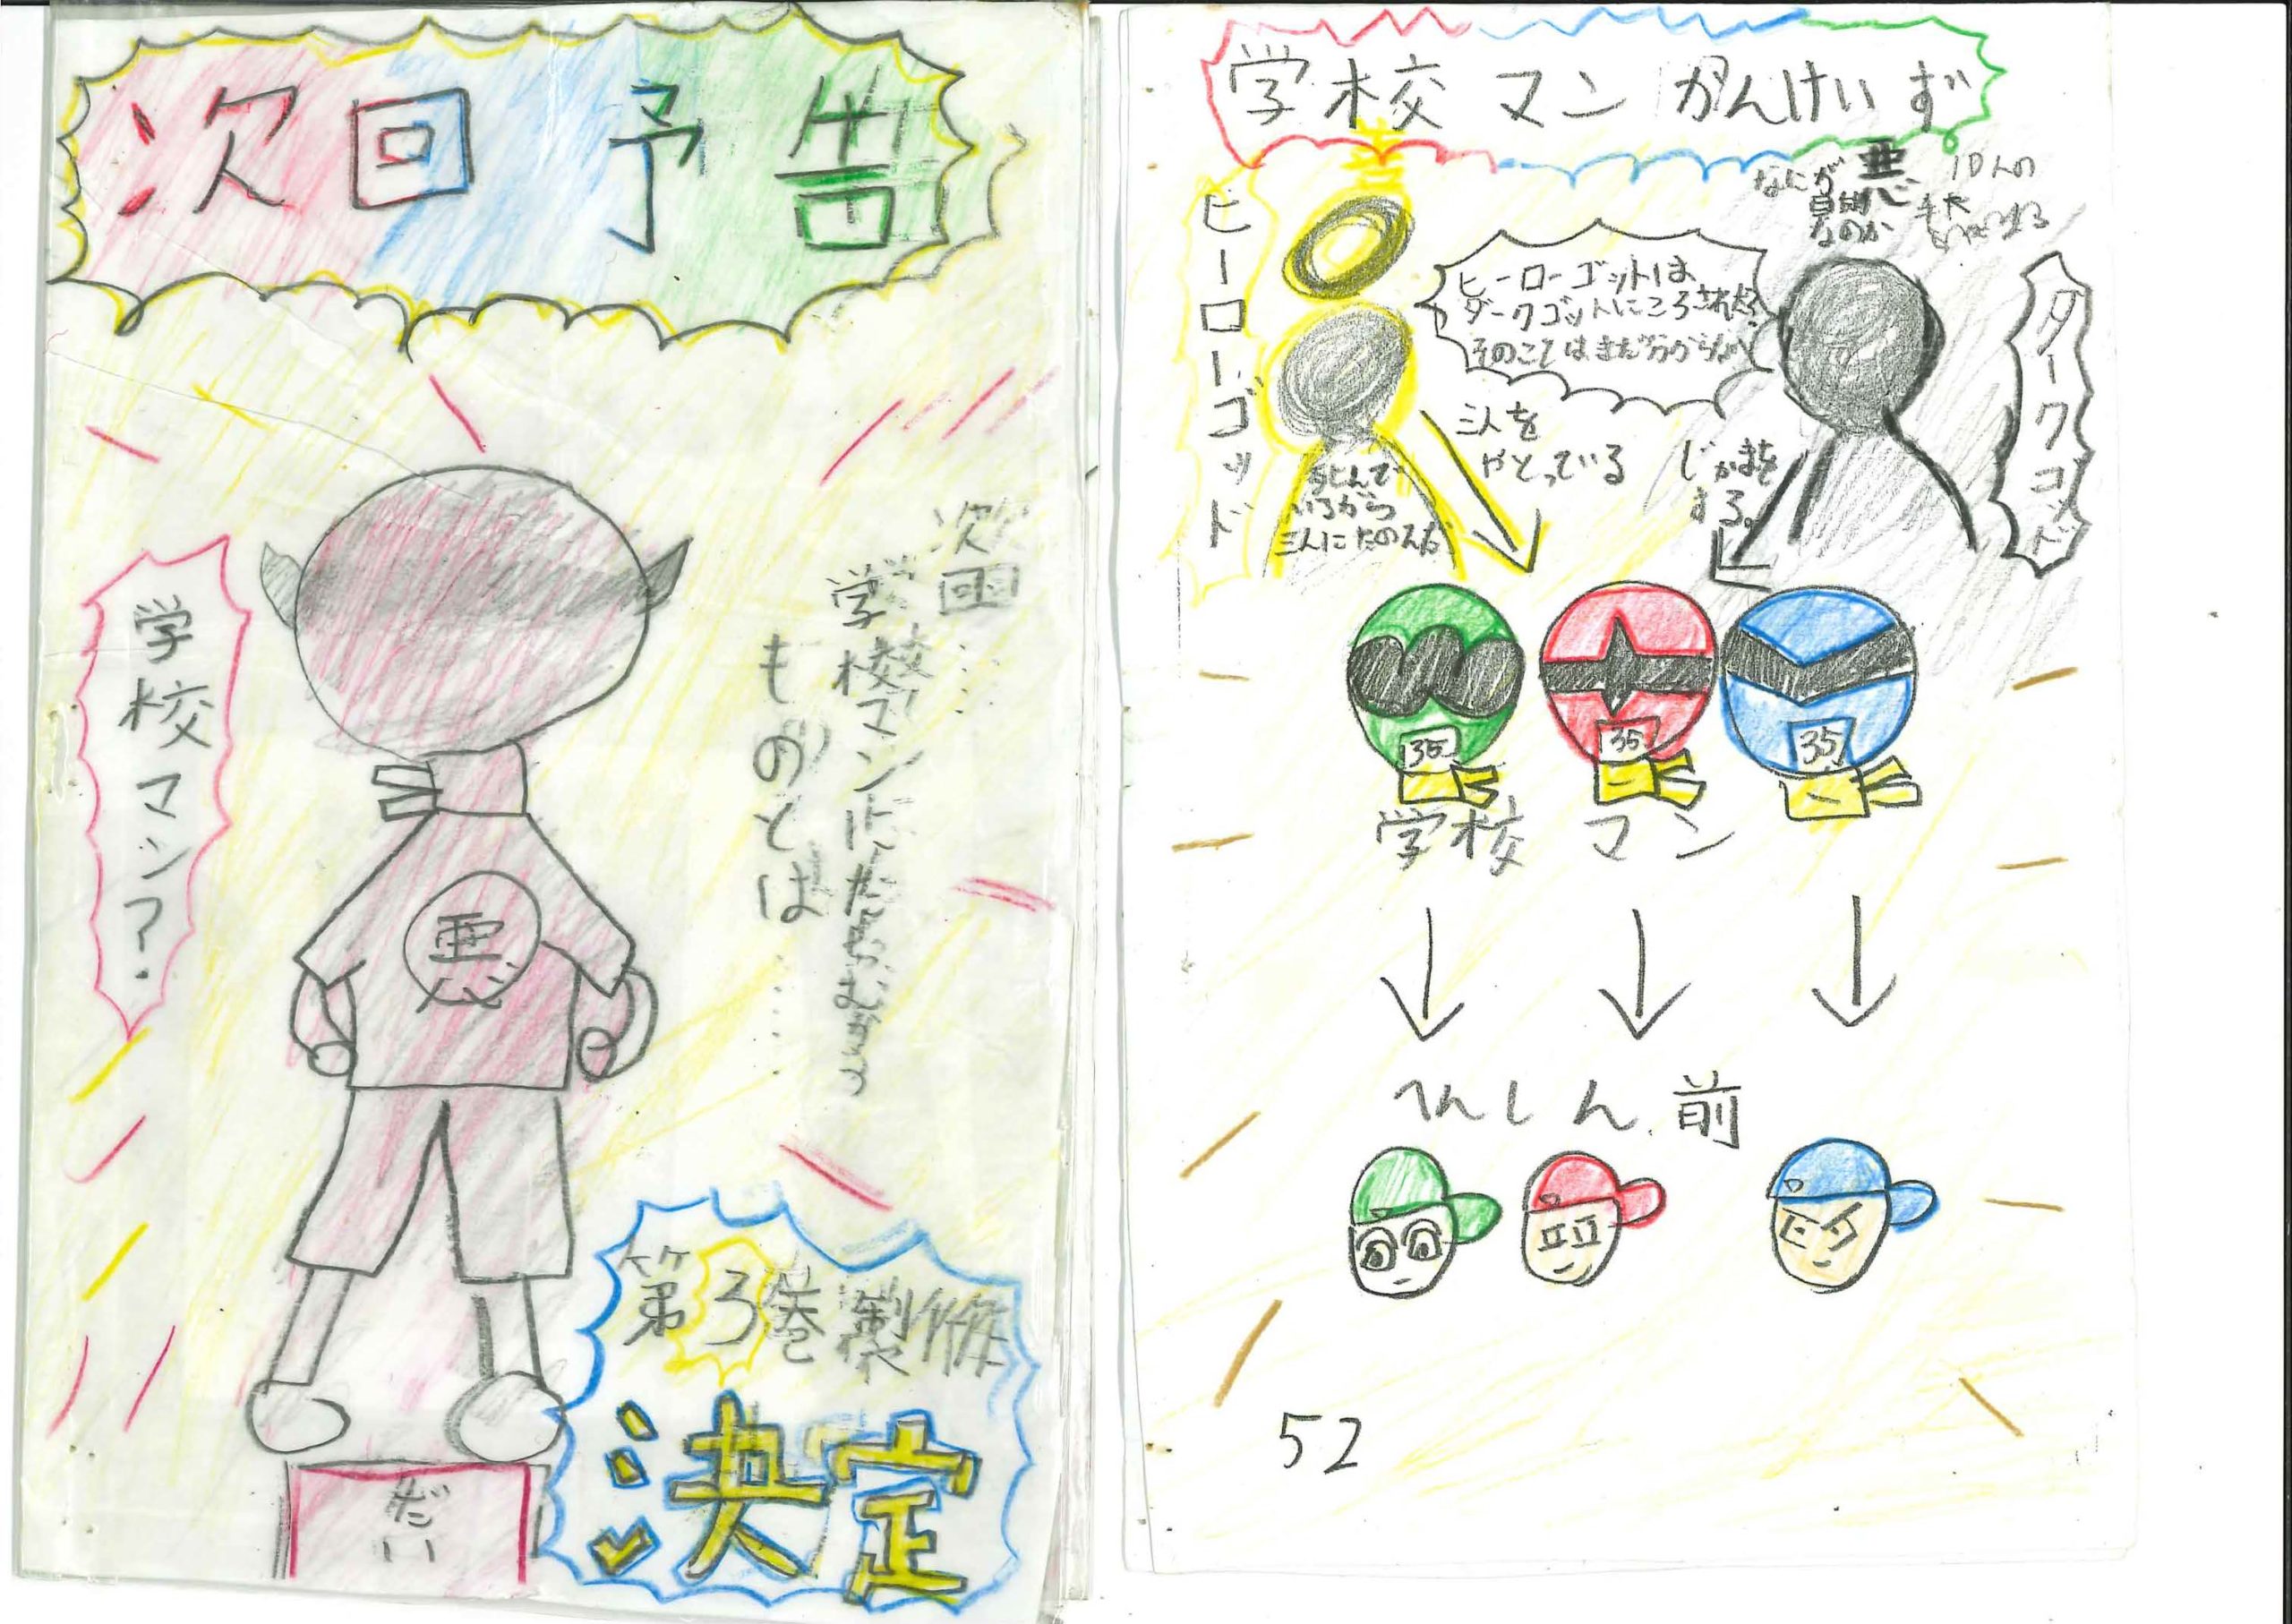 次回予告
次回……
学校マンにたちむかう
ものとは……
学校マン?
悪
だい
第3巻製作
決定
学校マンかんけいず
善
ヒーローゴッド
ヒーローゴットは
ダークゴットにころされた?
そのことはまだ分からない
悪
なにが
目的
なのか
10人の
ダークゴッド
三人を
やとっている
じゃまを
する。
しんで
いるから
三人にたのんだ
35
35
35
学校マン
へんしん前
52